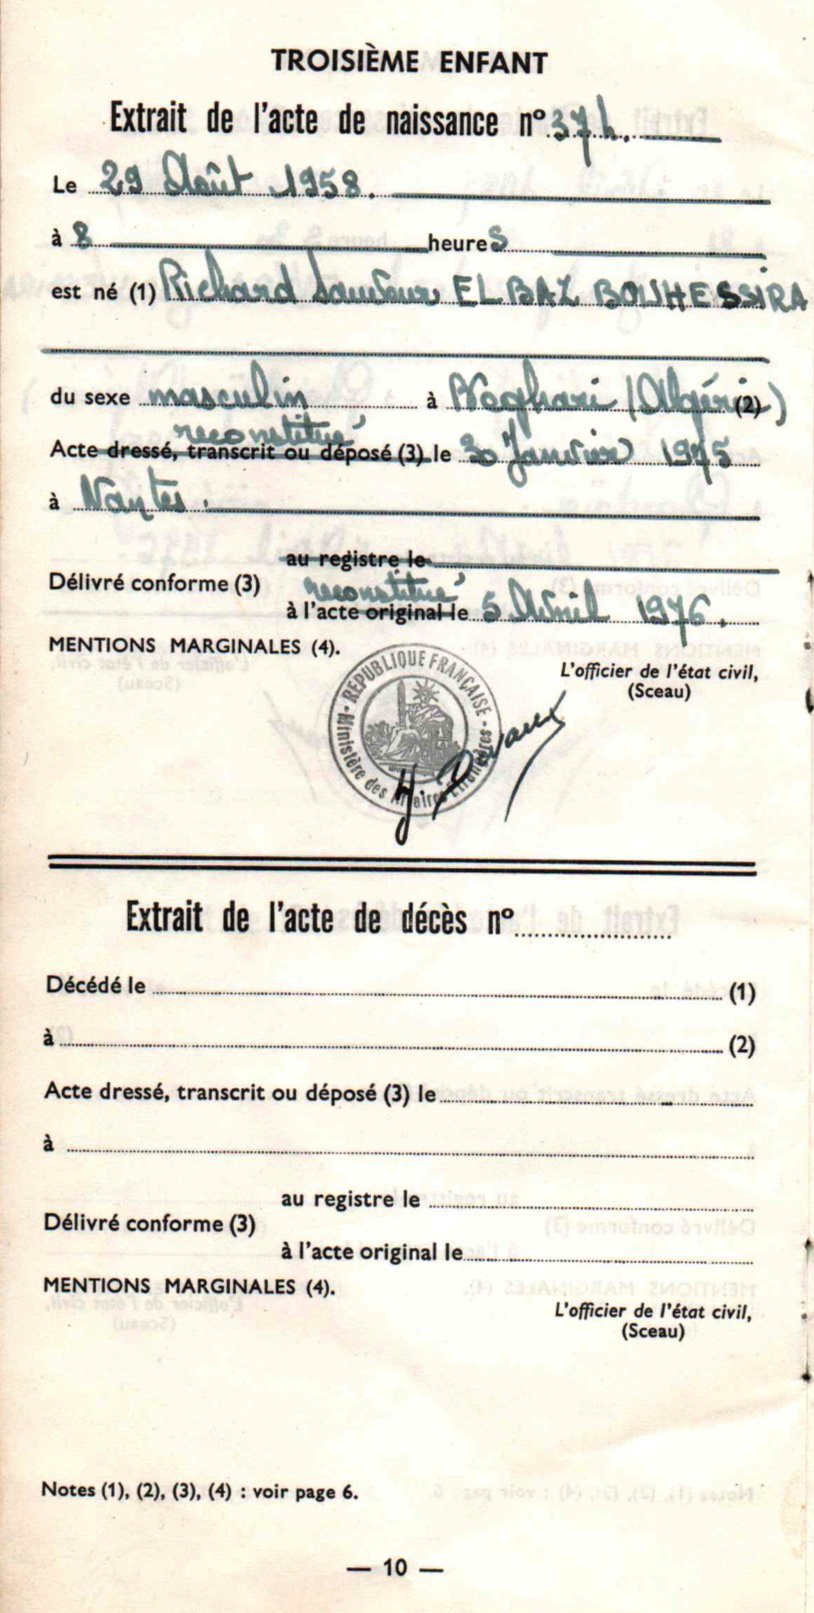 TROISIÈME ENFANT
Extrait de l'acte de naissance nº 374.
Le 29 Août 1958.
à 8 heures
est né (1) Richard Sauveur EL BAZ BOUHESSIRA
du sexe masculin à (Algérie) (2)
reconstitué
Acte dressé, transcrit ou déposé (3) le 30 Janvier 1975
à Nantes.
au registre le
Délivré conforme (3)
reconstitué
à l'acte original le 5 Avril 1976.
MENTIONS MARGINALES (4).
L'officier de l'état civil,
(Sceau)
RÉPUBLIQUE FRANÇAISE
Ministère des Affaires Étrangères
Extrait de l'acte de décès nº
Décédé le (1)
à (2)
Acte dressé, transcrit ou déposé (3) le
à
au registre le
Délivré conforme (3)
à l'acte original le
MENTIONS MARGINALES (4).
L'officier de l'état civil,
(Sceau)
Notes (1), (2), (3), (4) : voir page 6.
— 10 —